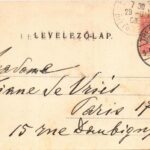 LEVELEZŐ-LAP.
Madame
de Vriès
Paris 17
15 rue Daubigny